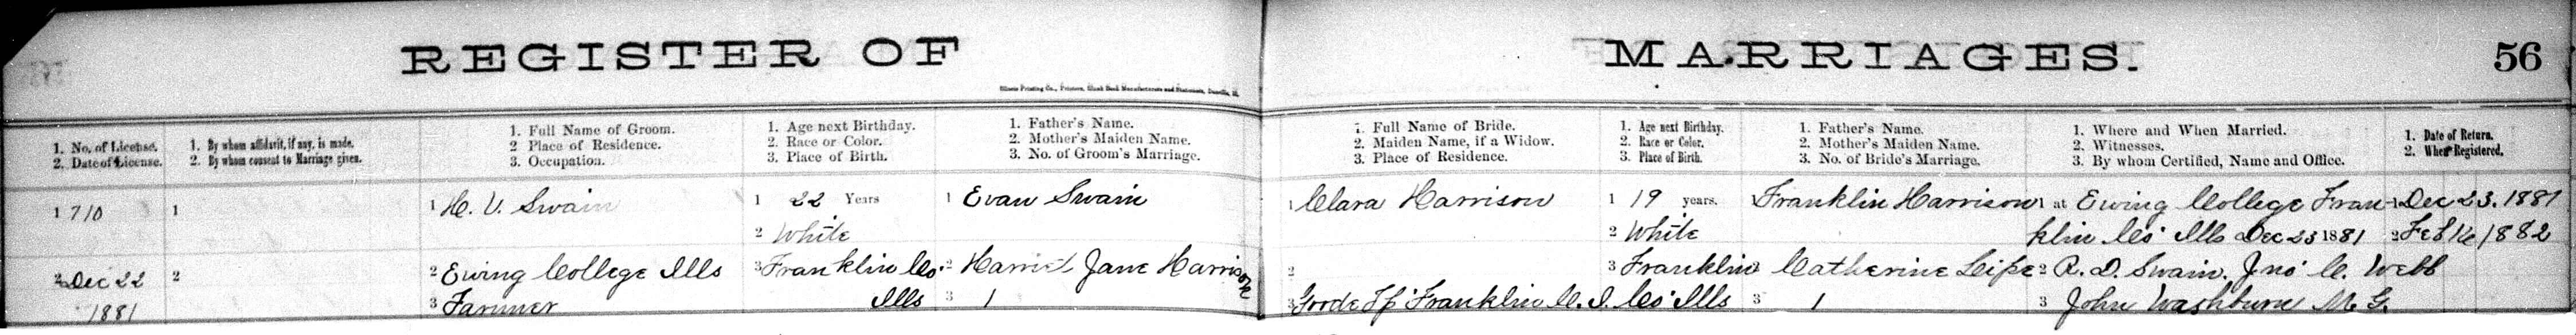 REGISTER OF MARRIAGES. 56
Illinois Printing Co., Printers, Blank Book Manufacturers and Stationers, Danville, Ill.
1. No. of License.
2. Date of License.
1. By whom affidavit, if any, is made.
2. By whom consent to Marriage given.
1. Full Name of Groom.
2 Place of Residence.
3. Occupation.
1. Age next Birthday.
2. Race or Color.
3. Place of Birth.
1. Father's Name.
2. Mother's Maiden Name.
3. No. of Groom's Marriage.
1. Full Name of Bride.
2. Maiden Name, if a Widow.
3. Place of Residence.
1. Age next Birthday.
2. Race or Color.
3. Place of Birth.
1. Father's Name.
2. Mother's Maiden Name.
3. No. of Bride's Marriage.
1. Where and When Married.
2. Witnesses.
3. By whom Certified, Name and Office.
1. Date of Return.
2. When Registered.
1 710
2 Dec 22
1881
1
2
1 H. V. Swain
2 Ewing College Ills
3 Farmer
1 22 Years
2 White
3 Franklin Co.
Ills
1 Evan Swain
2 Harriet Jane Harrison
3 1
1 Clara Harrison
2
3 Goode Tp Franklin Co. Ills
1 19 years.
2 White
3 Franklin
Co. Ills
Franklin Harrison
2 Catherine Leipe
3 1
1 at Ewing College Fran-
klin Co. Ills Dec 23 1881
2 R. D. Swain. Jno. C. Webb
3 John Washburn M. G.
1 Dec 23. 1881
2 Feb 14 1882